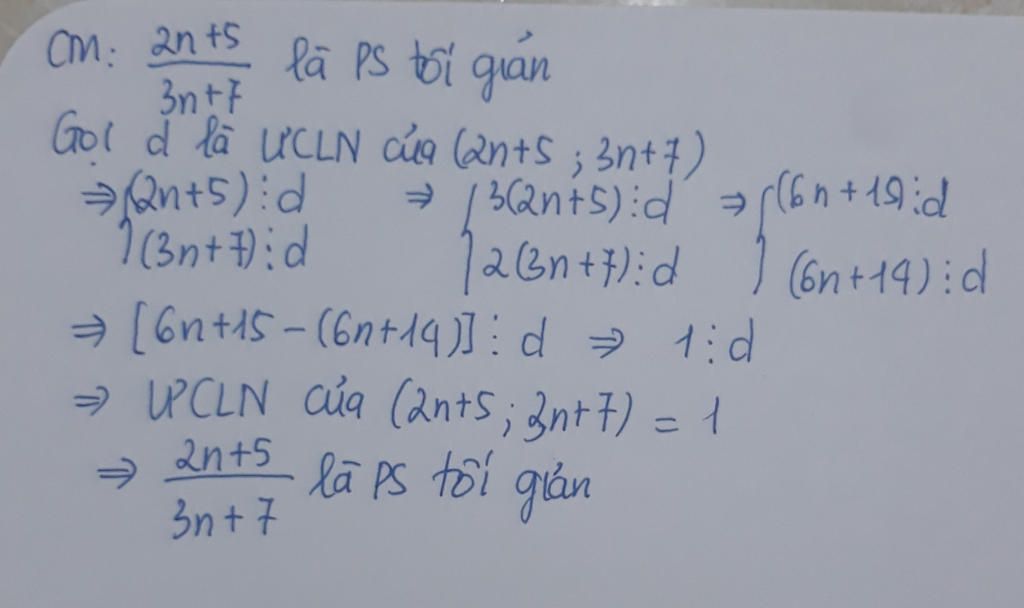 CM: (2n+5)/(3n+7) là PS tối giản
Gọi d là ƯCLN của (2n+5 ; 3n+7)
⇒ {(2n+5)⋮d ⇒ {3(2n+5)⋮d ⇒ {(6n+15)⋮d
(3n+7)⋮d 2(3n+7)⋮d (6n+14)⋮d
⇒ [6n+15-(6n+14)]⋮d ⇒ 1⋮d
⇒ ƯCLN của (2n+5; 3n+7) = 1
⇒ (2n+5)/(3n+7) là PS tối giản